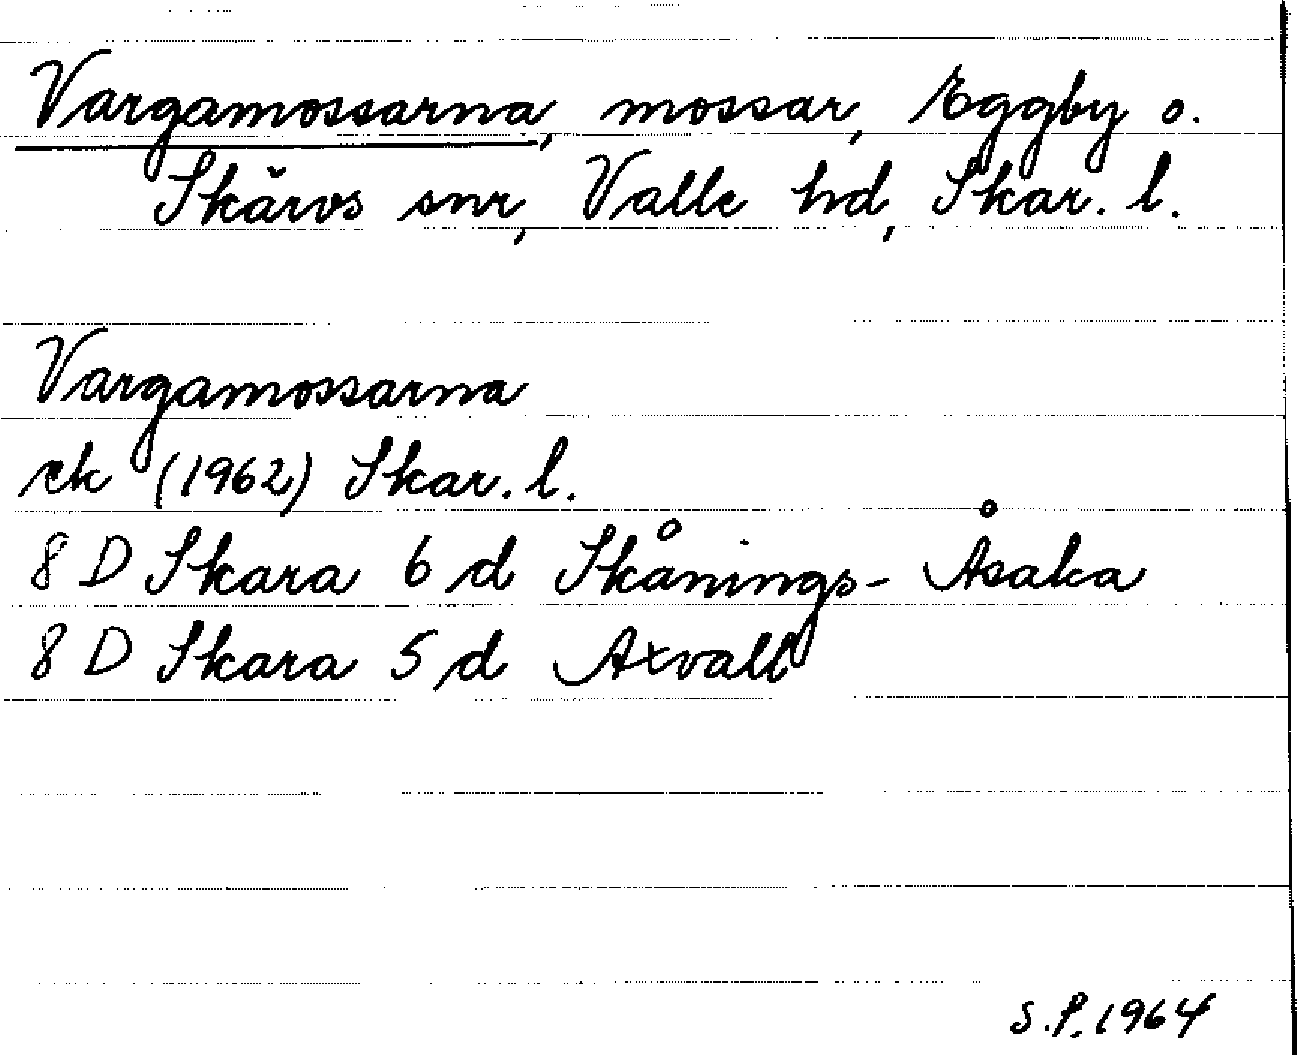 Vargamossarna, mossar, Eggby o.
Skärvs snr, Valle hd, Skar. l.
Vargamossarna
ek (1962) Skar. l.
8 D Skara 6 d Skånings-Åsaka
8 D Skara 5 d Axvall
S.P. 1964